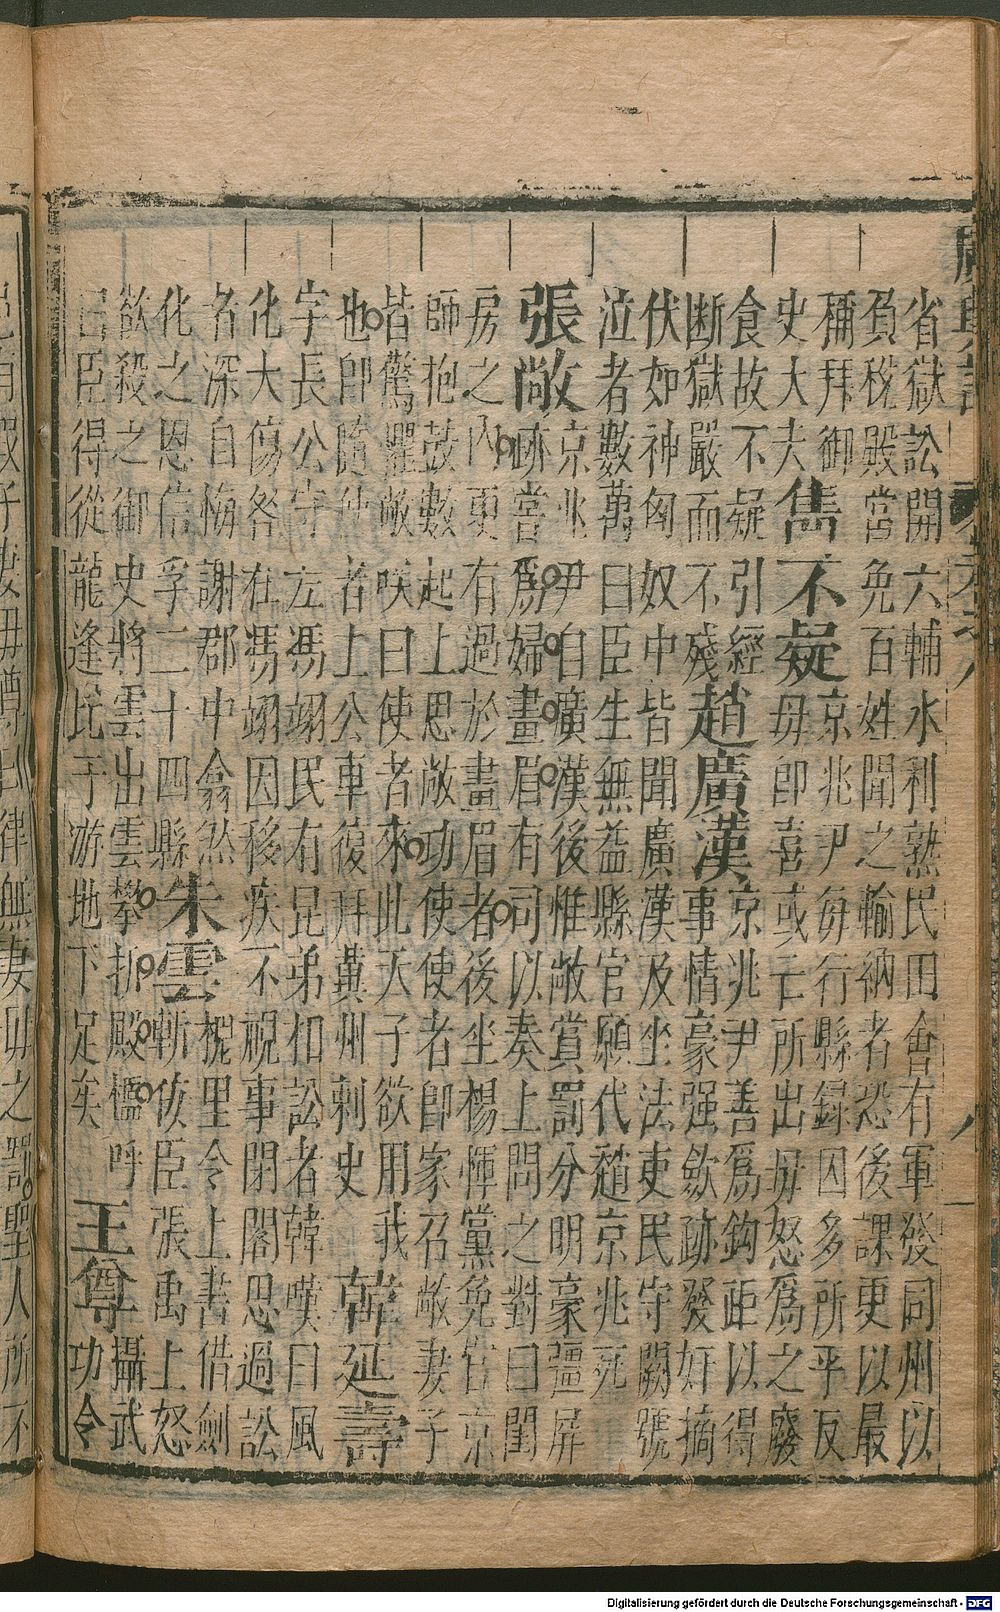 省獄訟開六輔水利熟民田會有軍發同州以
負稅殿當免百姓聞之輸納者恐後課更以最
稱拜御
史大夫雋不疑京兆尹每行縣録囚多所平反
母卽喜或亡所出母怒爲之廢
食故不疑引經
断獄嚴而不殘趙廣漢京兆尹善爲鈎距以得
事情豪强歛跡發奸摘
伏如神匈奴中皆聞廣漢及坐法吏民守闕號
泣者數萬曰臣生無益縣官願代趙京兆死
張敞京兆尹自廣漢後惟敞賞罰分明豪彊屏
跡嘗爲婦畫眉有司以奏上問之對曰閨
房之內更有過於畫眉者後坐楊惲黨免官京
師抱鼓數起上思敞功使使者卽家召敞妻子
皆驚懼敞咲曰使者來此天子欲用我
也卽隨使者上公車復拜冀州刺史韓延壽
字長公守左馮翊民有昆弟相訟者韓嘆曰風
化大傷咎在馮翊因移疾不視事閉閣思過訟
者深自悔謝郡中翕然朱雲槐里令上書借劍
斬佞臣張禹上怒
化之恩信孚二十四縣
欲殺之御史將雲出雲攀折殿檻呼
臣得從龍逢比干游地下足矣王尊
攝武
功令
Digitalisierung gefördert durch die Deutsche Forschungsgemeinschaft - DFG